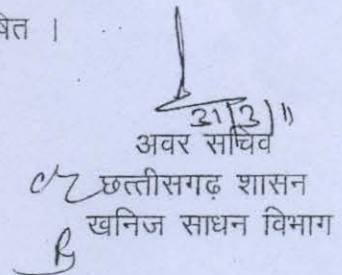 षित ।
31/3/11
अवर सचिव
छत्तीसगढ़ शासन
खनिज साधन विभाग